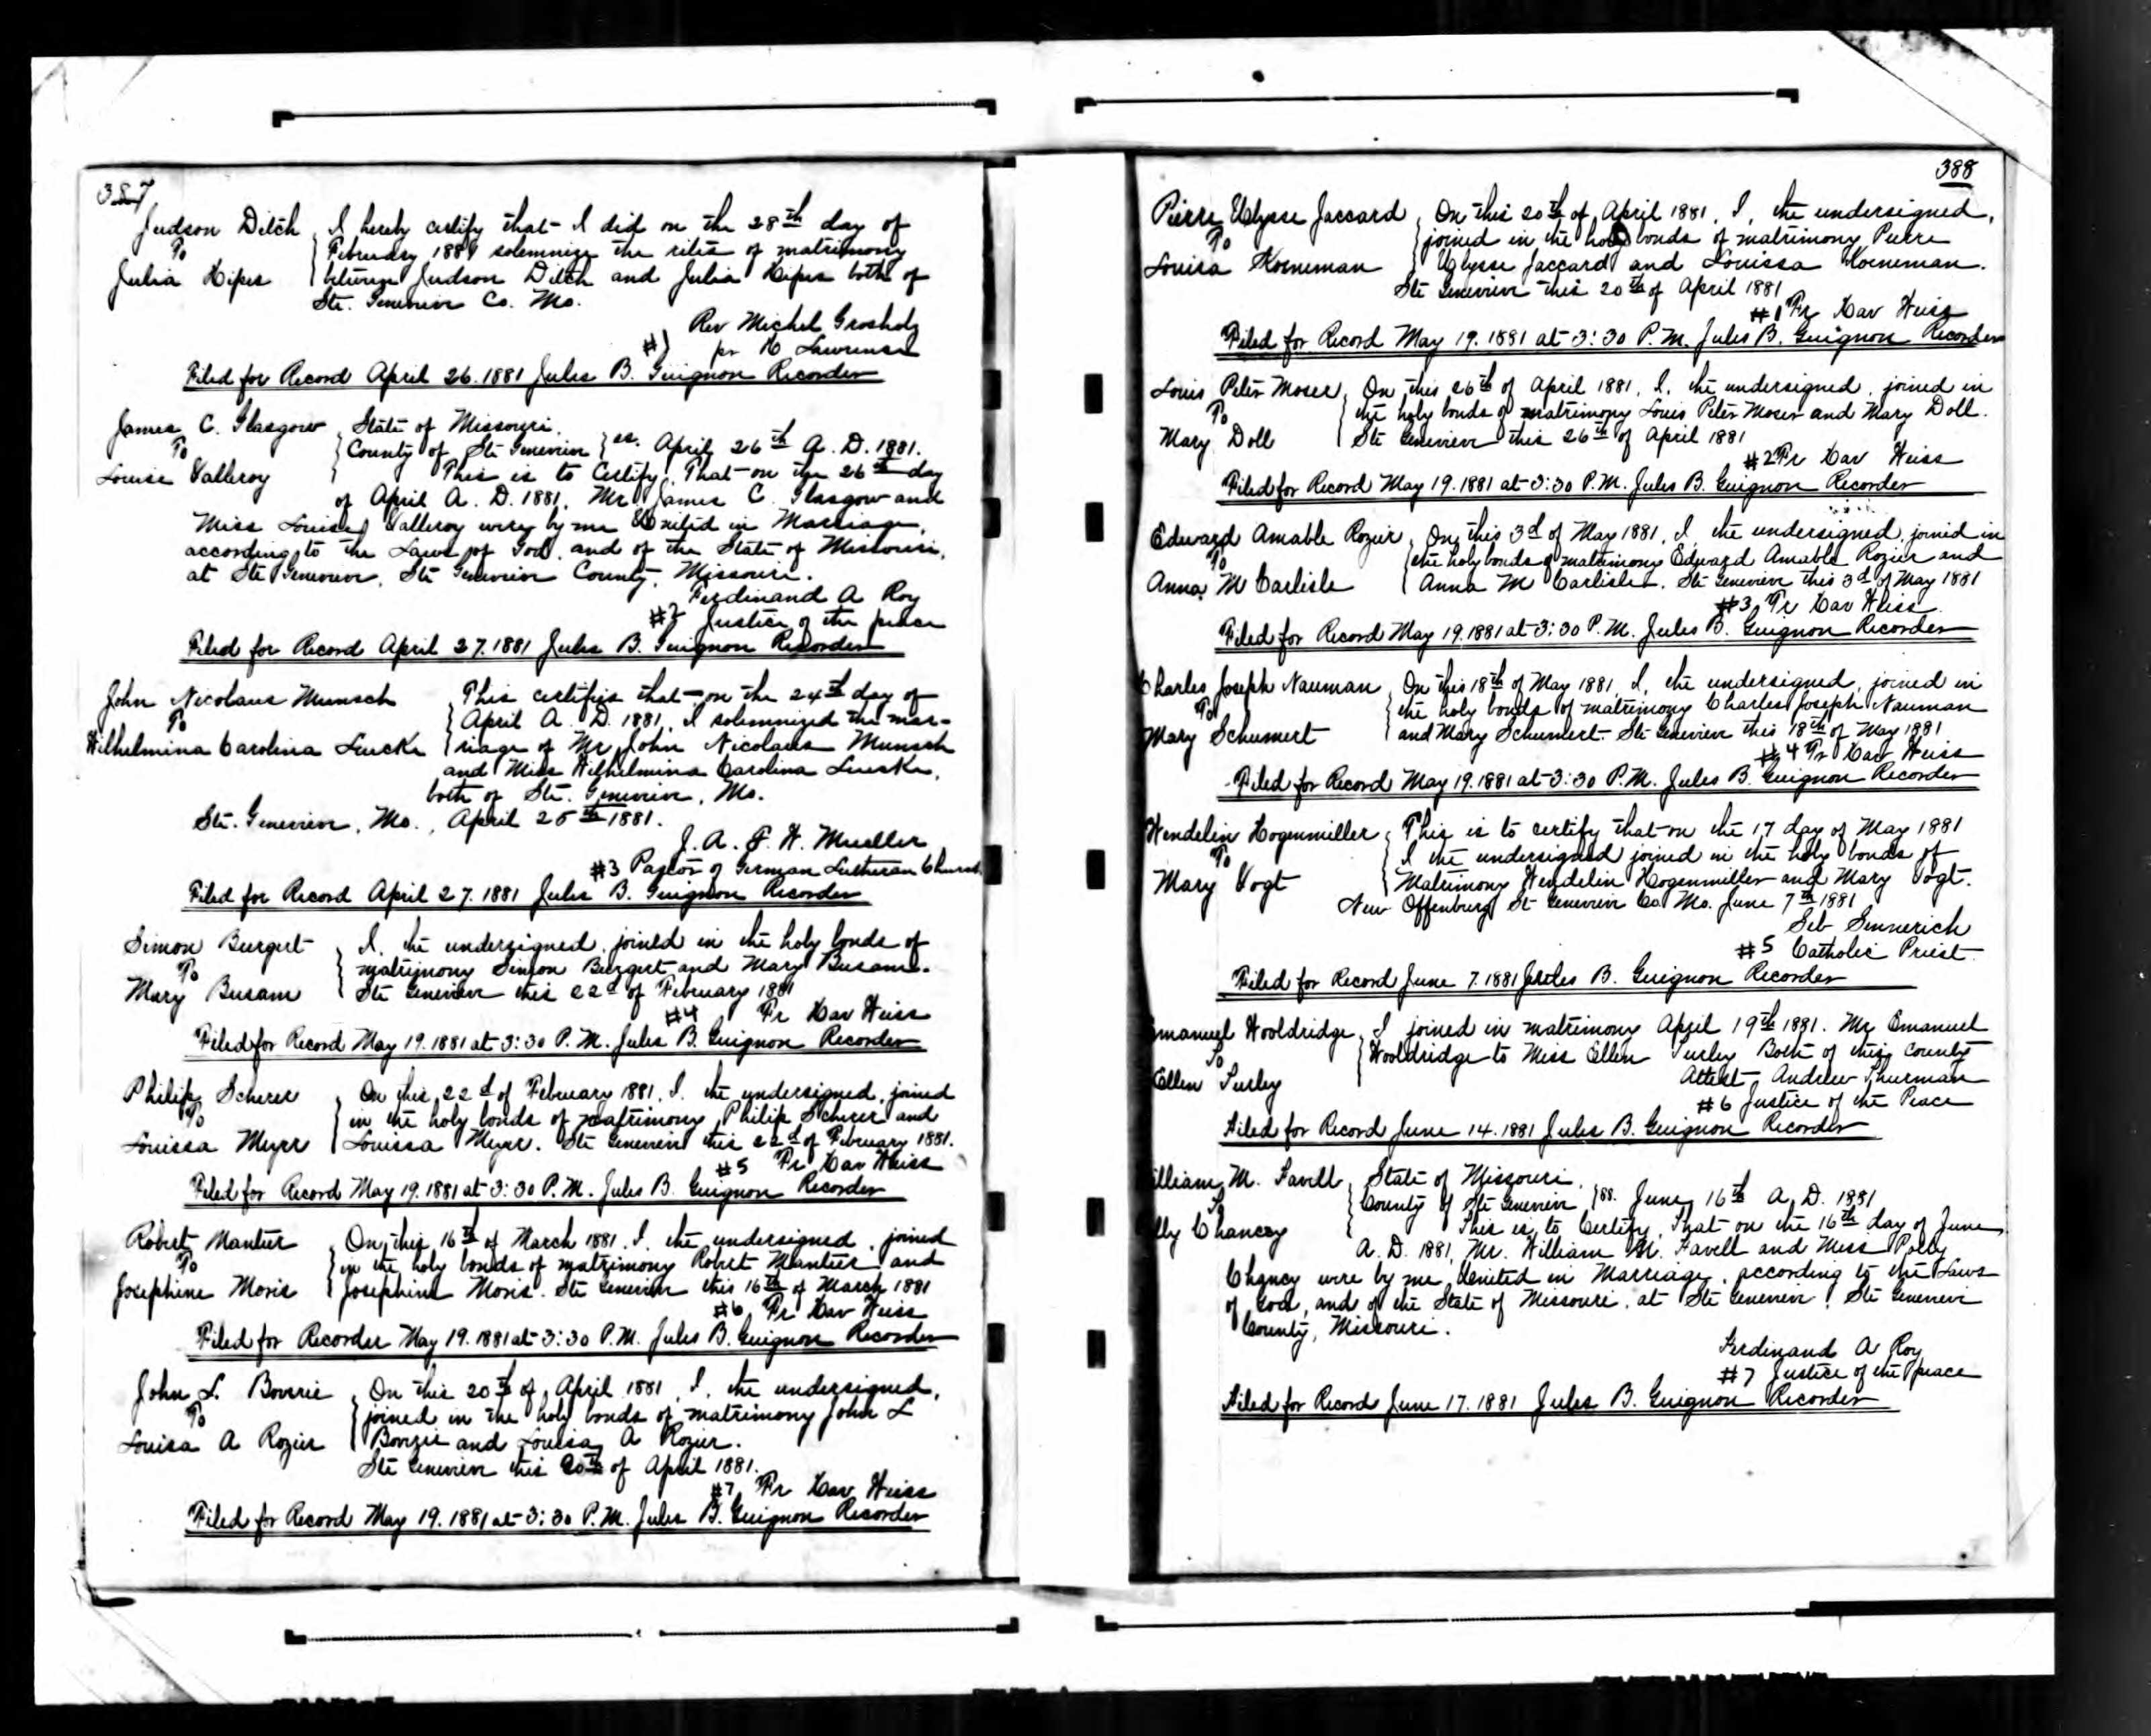 387
Judson Ditch } I hereby certify that I did on the 28th day of
To February 1881 solemnize the rites of matrimony
Julia Hipes between Judson Ditch and Julia Hipes both of
Ste. Genevieve Co. Mo.
Rev Michel Grosholz
#1 per H Lawrence
Filed for Record April 26. 1881 Jules B. Guignon Recorder
James C. Glasgow } State of Missouri.
To County of Ste Genevieve } ss. April 26th A. D. 1881.
Louise Valleroy This is to Certify, That on the 26th day
of April A. D. 1881, Mr James C. Glasgow and
Miss Louise Valleroy were by me United in Marriage,
according to the Laws of God, and of the State of Missouri,
at Ste Genevieve, Ste Genevieve County, Missouri.
Ferdinand A Roy
#2 Justice of the peace
Filed for Record April 27. 1881 Jules B. Guignon Recorder
John Nicolaus Munsch } This certifies that on the 24th day of
To April A. D. 1881, I solemnized the mar-
Wilhelmina Carolina Luecke riage of Mr John Nicolaus Munsch
and Miss Wilhelmina Carolina Luecke,
both of Ste. Genevieve, Mo.
Ste. Genevieve, Mo., April 25th 1881.
J. A. F. W. Mueller
#3 Pastor of German Lutheran Church.
Filed for Record April 27. 1881 Jules B. Guignon Recorder
Simon Burgert } I, the undersigned, joined in the holy bonds of
To matrimony Simon Burgert and Mary Busam.
Mary Busam Ste Genevieve this 22d of February 1881
#4 Fr Xav Weiss
Filed for Record May 19. 1881 at 3:30 P. M. Jules B. Guignon Recorder
Philip Scherer } On this 22d of February 1881, I, the undersigned, joined
To in the holy bonds of matrimony Philip Scherer and
Louissa Meyer Louissa Meyer. Ste Genevieve this 22d of February 1881.
#5 Fr Xav Weiss
Filed for Record May 19. 1881 at 3:30 P. M. Jules B. Guignon Recorder
Robert Mantier } On this 16th of March 1881. I, the undersigned, joined
To in the holy bonds of matrimony Robert Mantier and
Josephine Moris Josephine Moris. Ste Genevieve this 16th of March 1881
#6 Fr Xav Weiss
Filed for Recorder May 19. 1881 at 3:30 P.M. Jules B. Guignon Recorder
John L. Boverie } On this 20th of April 1881, I, the undersigned,
To joined in the holy bonds of matrimony John L
Louisa A Rozier Boverie and Louisa A Rozier.
Ste Genevieve this 20th of April 1881.
#7 Fr Xav Weiss
Filed for Record May 19. 1881 at 3:30 P.M. Jules B. Guignon Recorder
388
Pierre Ulysse Jaccard } On this 20th of April 1881, I, the undersigned,
To joined in the holy bonds of matrimony Pierre
Louisa Horneman Ulysse Jaccard and Louissa Horneman.
Ste Genevieve this 20th of April 1881
#1 Fr Xav Weiss
Filed for Record May 19. 1881 at 3:30 P. M. Jules B. Guignon Recorder
Louis Peter Moser } On this 26th of April 1881, I, the undersigned, joined in
To the holy bonds of matrimony Louis Peter Moser and Mary Doll.
Mary Doll Ste Genevieve this 26th of April 1881
#2 Fr Xav Weiss
Filed for Record May 19. 1881 at 3:30 P.M. Jules B. Guignon Recorder
Edward Amable Rozier } On this 3d of May 1881, I, the undersigned, joined in
To the holy bonds of matrimony Edward Amable Rozier and
Anna M Carlisle Anna M Carlisle. Ste Genevieve this 3d of May 1881
#3 Fr Xav Weiss
Filed for Record May 19. 1881 at 3:30 P.M. Jules B. Guignon Recorder
Charles Joseph Nauman } On this 18th of May 1881, I, the undersigned, joined in
To the holy bonds of matrimony Charles Joseph Nauman
Mary Schumert and Mary Schumert. Ste Genevieve this 18th of May 1881
#4 Fr Xav Weiss
Filed for Record May 19. 1881 at 3:30 P.M. Jules B. Guignon Recorder
Wendelin Hogenmiller } This is to certify that on the 17 day of May 1881
To I the undersigned joined in the holy bonds of
Mary Vogt Matrimony Wendelin Hogenmiller and Mary Vogt.
New Offenburg St Genevieve Co. Mo. June 7th 1881
Seb Sennerich
#5 Catholic Priest.
Filed for Record June 7. 1881 Jules B. Guignon Recorder
Emanuel Wooldridge } I joined in matrimony April 19th 1881. Mr Emanuel
To Wooldridge to Miss Ellen Turley Both of this County
Ellen Turley Attest Andrew Thurman
#6 Justice of the Peace
Filed for Record June 14. 1881 Jules B. Guignon Recorder
illiam M. Favell } State of Missouri,
To County of Ste Genevieve } ss. June 16th A. D. 1881
lly Chancey This is to Certify, That on the 16th day of June
A. D. 1881, Mr. William M. Favell and Miss Polly
Chancy were by me United in Marriage, according to the Laws
of God, and of the State of Missouri, at Ste Genevieve, Ste Genevieve
County, Missouri.
Ferdinand A Roy
#7 Justice of the peace
Filed for Record June 17. 1881 Jules B. Guignon Recorder